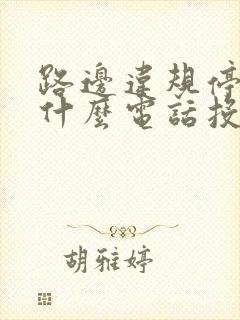 路邊違規停
什麼電話投
胡雅婷